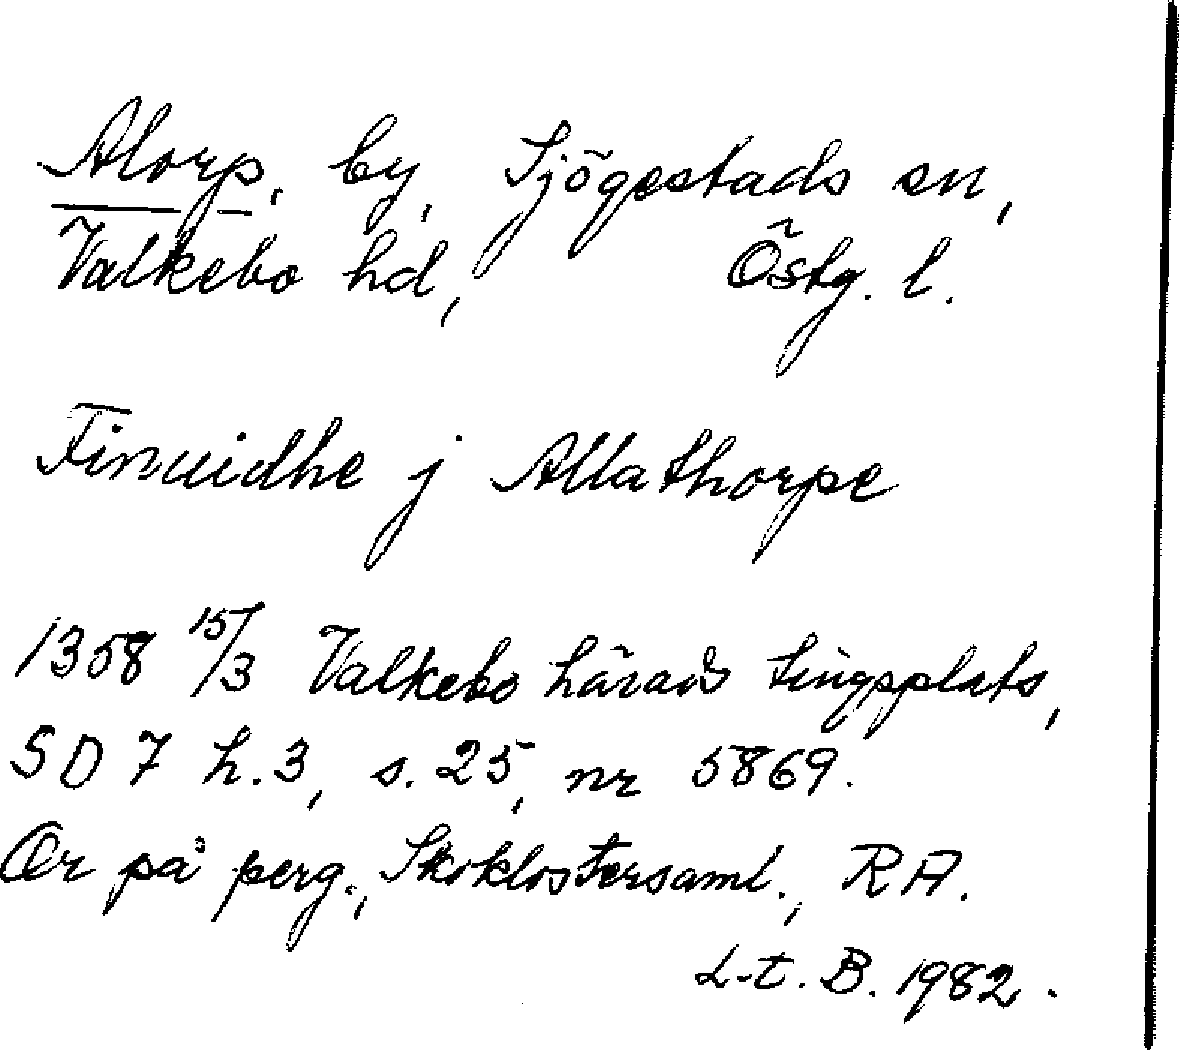 Alorp, by, Sjögestads sn,
Valkebo hd, Östg. l.
Finuidhe j Allathorpe
1358 15/3 Valkebo härads tingsplats,
SD 7 h. 3, s. 25, nr 5869.
Or på perg., Skoklostersaml., RA.
L-t. B. 1982.